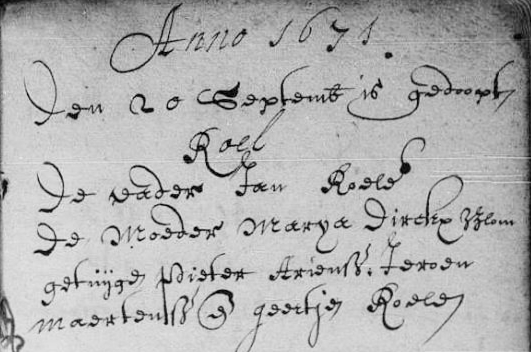 Anno 1671.
Den 20 Septemb is gedoopt
Roel
De vader Jan Roels
De Moeder Marya Dirckx Blom
getuijgen Pieter Ariensz. Jeroen
Maertensz & geertjen Roelen